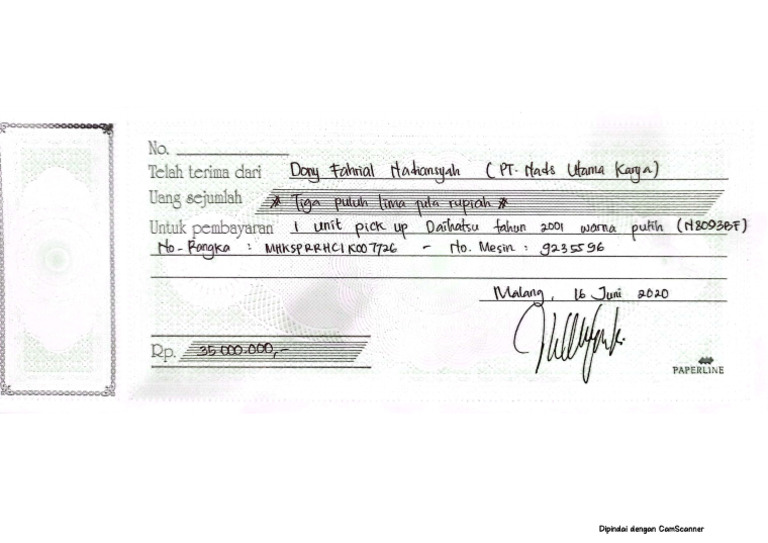 No.
Telah terima dari Dony Fahrial Hadiansyah (PT. Hads Utama Karya)
Uang sejumlah # Tiga puluh lima juta rupiah #
Untuk pembayaran 1 unit pick up Daihatsu tahun 2001 warna putih (N8093BF)
No. Rangka : MHKSPRRHC1K007726 - No. Mesin : 9235596
Malang, 16 Juni 2020
Rp. 35.000.000,-
PAPERLINE
Dipindai dengan CamScanner